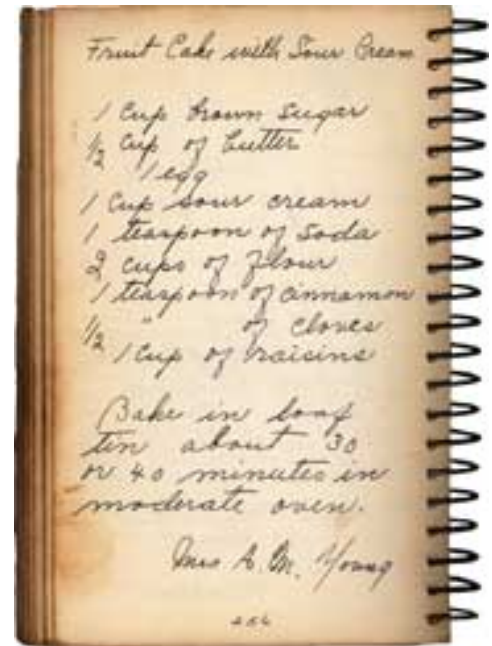 Fruit Cake with Sour Cream
1 Cup brown Sugar
1/2 Cup of butter
1 egg
1 Cup sour cream
1 teaspoon of Soda
2 cups of flour
1 teaspoon of cinnamon
1/2 " of cloves
1 Cup of raisins
Bake in loaf
tin about 30
or 40 minutes in
moderate oven.
Mrs A. M. Young
256